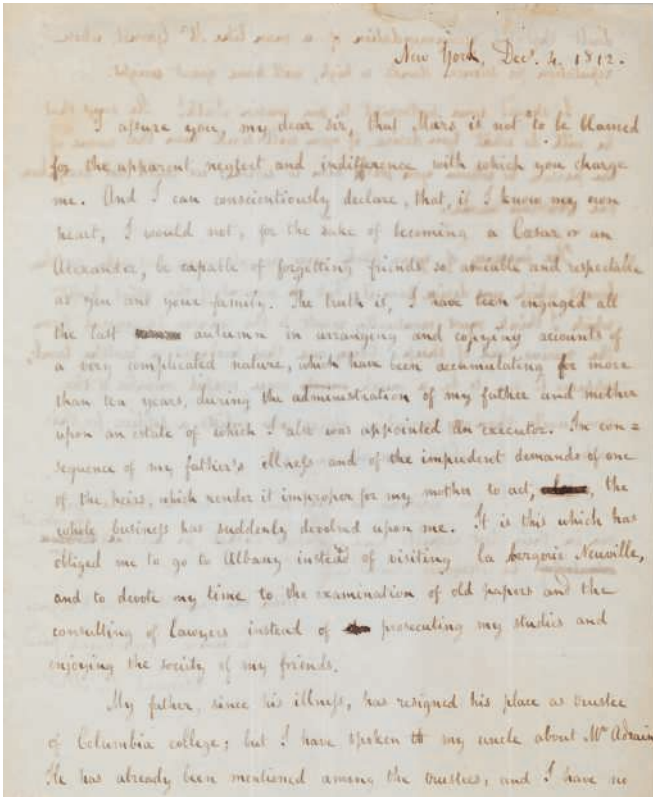 New York, Decr. 4, 1812.
I assure you, my dear sir, that Mars is not to be blamed
for the apparent neglect and indifference with which you charge
me. And I can conscientiously declare, that, if I know my own
heart, I would not, for the sake of becoming a Cæsar or an
Alexander, be capable of forgetting friends so amiable and respectable
as you and your family. The truth is, I have been engaged all
the last autumn in arranging and copying accounts of
a very complicated nature, which have been accumulating for more
than ten years, during the administration of my father and mother
upon an estate of which I also was appointed an executor. In con=
sequence of my father's illness and of the impudent demands of one
of the heirs, which render it improper for my mother to act, the
whole business has suddenly devolved upon me. It is this which has
obliged me to go to Albany instead of visiting la bergerie Neuville,
and to devote my time to the examination of old papers and the
consulting of Lawyers instead of prosecuting my studies and
enjoying the society of my friends.
My father, since his illness, has resigned his place as trustee
of Columbia college; but I have spoken to my uncle about Mr Adrain
He has already been mentioned among the trustees, and I have no